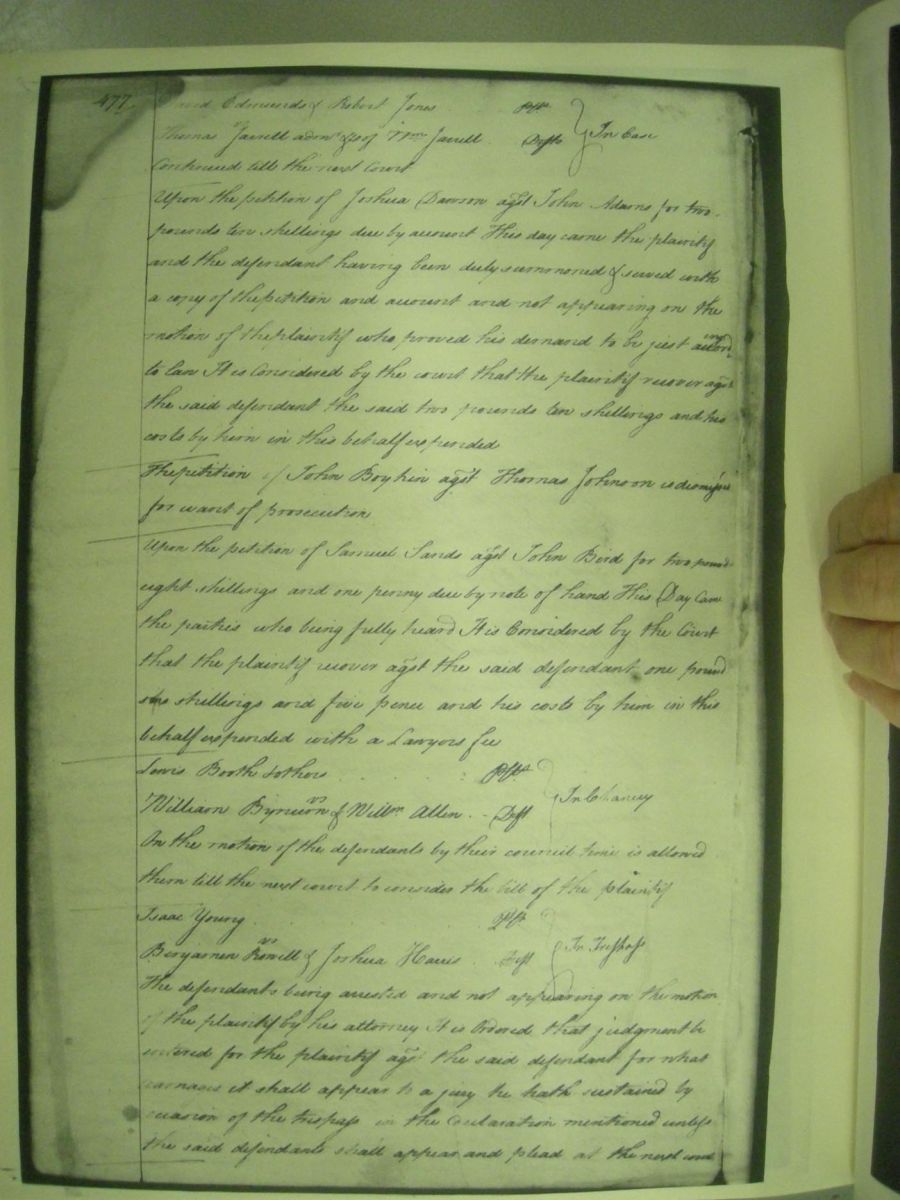 477
David Edmunds & Robert Jones Plts
vs In Case
Thomas Jarrell admr &c of Wm Jarrell Deft
Continued till the next Court
Upon the petition of Joshua Dawson agst John Adams for two
pounds ten shellings due by account This day came the plaintif
and the defendant having been duly summoned & served with
a copy of the petition and account and not appearing on the
motion of the plaintif who proved his demand to be just according
to Law It is Considered by the court that the plaintif recover agst
the said defendant the said two pounds ten shellings and his
costs by him in this behalf expended
The petition of John Boykin agst Thomas Johnson is dismissed
for want of prosecution
Upon the petition of Samuel Sands agst John Bird for two pound
eight shillings and one penny due by note of hand This Day Came
the parties who being fully heard It is Considered by the Court
that the plaintif recover agst the said defendant one pound
shillings and five pence and his costs by him in this
behalf expended with a Lawyers fee
Lewis Booth & others Plts
vs In Chancery
William Bynum & Willm Allen Deft
On the motion of the defendants by their council time is allowed
them till the next court to consider the bill of the plaintif
Isaac Young Plt
vs In Trespass
Benjamen Rowell & Joshua Harris Deft
The defendants being arrested and not appearing on the motion
of the plaintif by his attorney It is Ordered that judgment be
entered for the plaintif agst the said defendant for what
damages it shall appear to a jury he hath sustained by
occasion of the trespass in the declaration mentioned unless
the said defendants shall appear and plead at the next court